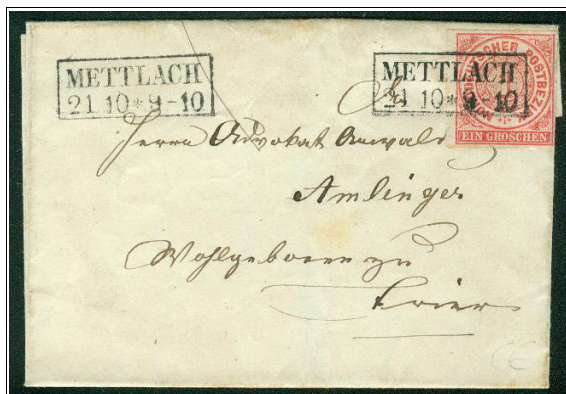 METTLACH
21 10 * 9-10
METTLACH
21 10 * 9-10
NORDDEUTSCHER POSTBEZIRK
EIN GROSCHEN
Herrn Advokat Anwald
Amlinger
Wohlgeboren zu
Trier